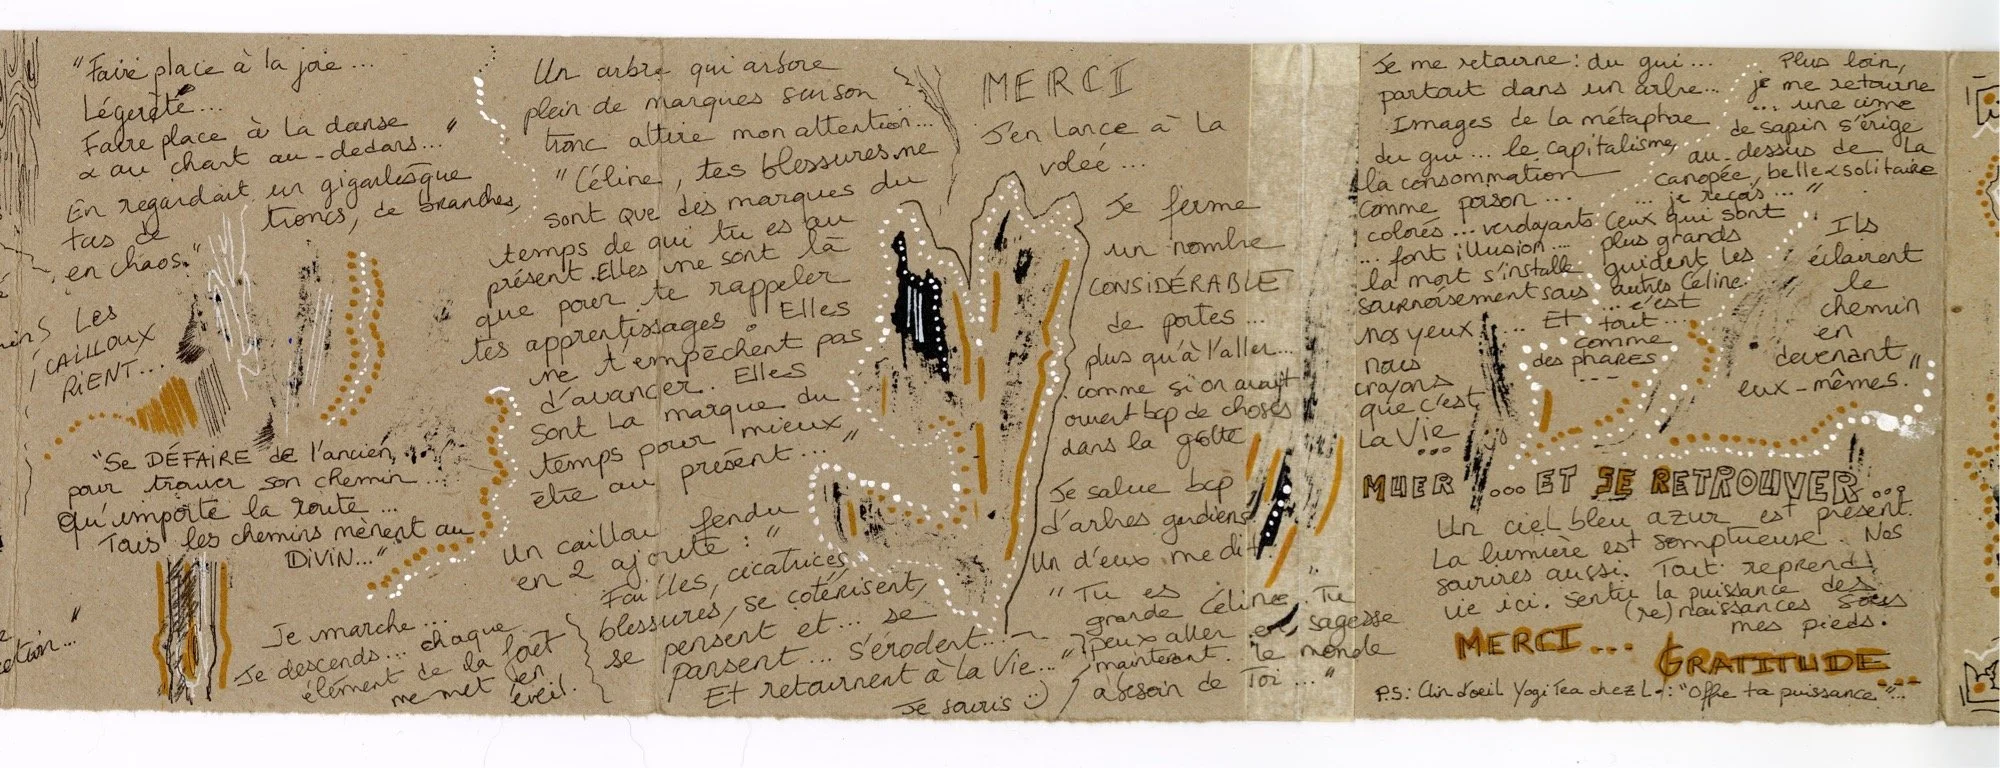 "Faire place à la joie...
Légèreté...
Faire place à la danse
& au chant au-dedans..."
En regardant un gigantesque
tas de troncs, de branches,
en chaos."
LES
CAILLOUX
RIENT...
"Se DÉFAIRE de l'ancien,
pour trouver son chemin...
Qu'importe la route...
Tous les chemins mènent au
DiViN..."
Je marche...
Je descends... chaque
élément de la forêt
me met en
éveil.
Un arbre qui arbore
plein de marques sur son
tronc attire mon attention...
"Céline, tes blessures ne
sont que des marques du
temps de qui tu es au
présent. Elles ne sont là
que pour te rappeler
tes apprentissages. Elles
ne t'empêchent pas
d'avancer. Elles
sont la marque du
temps pour mieux
être au présent..."
Un caillou fendu
en 2 ajoute : "
Failles, cicatrices,
blessures, se cotérisent,
se pensent et... se
pansent... s'érodent...
Et retournent à la Vie..."
Je souris :)
MERCI
J'en lance à la
volée...
Je ferme
un nombre
CONSIDÉRABLE
de portes...
plus qu'à l'aller...
comme si on avait
ouvert bcp de choses
dans la grotte
Je salue bcp
d'arbres gardiens
Un d'eux me dit :
"Tu es
grande Céline. Tu
peux aller en sagesse
maintenant. Le monde
a besoin de Toi..."
Je me retourne : du gui...
partout dans un arbre...
Images de la métaphore
du gui... le capitalisme,
la consommation
comme poison...
colorés... verdoyants
... font illusion...
la mort s'installe
sournoisement sous
nos yeux...
nous
croyons
que c'est
la Vie...
Plus loin,
je me retourne
... une cime
de sapin s'érige
au-dessus de la
canopée, belle & solitaire
... je reçois... "
Ceux qui sont
plus grands
guident les
autres Céline.
... c'est
Et tout
comme
des phares
...
Ils
éclairent
le
chemin
en
devenant
eux-mêmes."
MUER ... ET SE RETROUVER...
Un ciel bleu azur est présent.
La lumière est somptueuse. Nos
sourires aussi. Tout reprend
vie ici. Sentir la puissance des
(re)naissances sous
mes pieds.
MERCI... GRATITUDE...
P.S : Clin d'oeil Yogi Tea chez L. : "Offre ta puissance"...